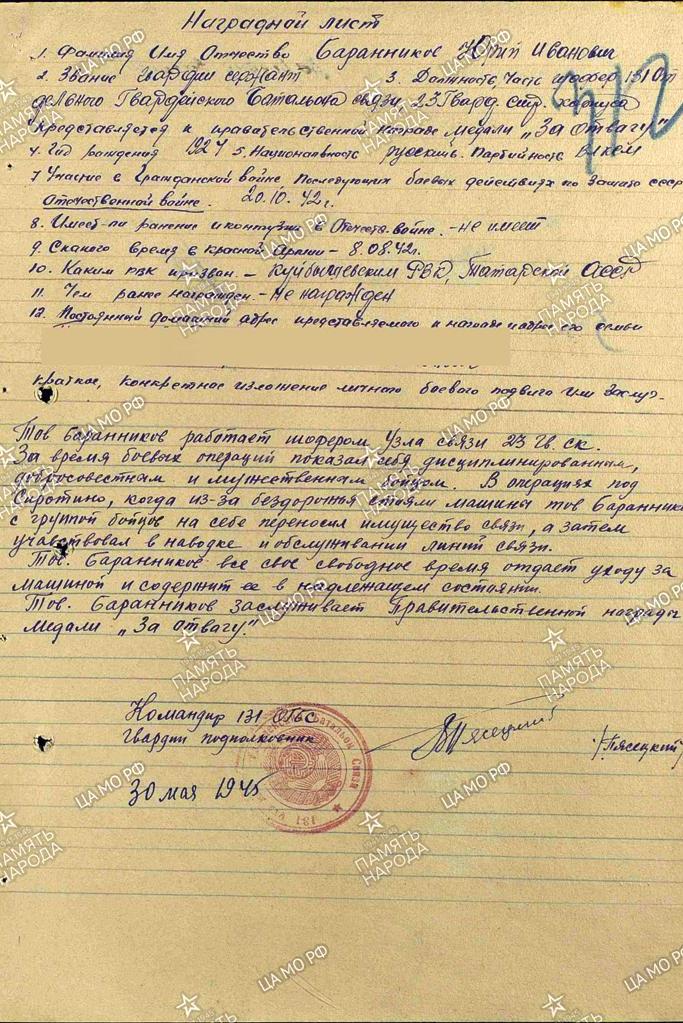 Наградной лист
1. Фамилия Имя Отчество Баранников Юрий Иванович
2. Звание гвардии сержант 3. Должность, Часть шофер 131 От
дельного Гвардейского батальона связи 23 Гвард. стр. корпуса
представляется к правительственной награде медали „За отвагу"
4. Год рождения 1924 5. Национальность русский. Партийность
7 Участие в Гражданской войне последующих боевых действиях по защите СССР
Отечественной войне. 20.10.42г.
8. Имеет-ли ранение и контузии в Отечеств. войне. - не имеет
9. С какого время в Красной Армии - 8.08.42г.
10. Каким РВК призван. - Куйбышевским РВК, Татарской АССР
11. Чем ранее награжден. - Не награжден
12. Постоянный домашний адрес представляемого к награде и адрес его семьи
краткое, конкретное изложение личного боевого подвига или заслуг-
Тов Баранников работает шофером Узла связи 23 гв. ск.
За время боевых операций показал себя дисциплинированным,
добросовестным и мужественным бойцом. В операциях под
Сиротино, когда из-за бездорожья стояли машины тов Баранников
с группой бойцов на себе переносил имущество связи, а затем
учавствовал в наводке и обслуживании линий связи.
Тов. Баранников все свое свободное время отдает уходу за
машиной и содержит ее в надлежащем состоянии.
Тов. Баранников заслуживает Правительственной награды
медали „За отвагу".
Командир 131 ОГБС
гвардии подполковник Пясецкий /Пясецкий
30 мая 1945
Батальон Связи
131
312
ЦА МО РФ
ПАМЯТЬ НАРОДА